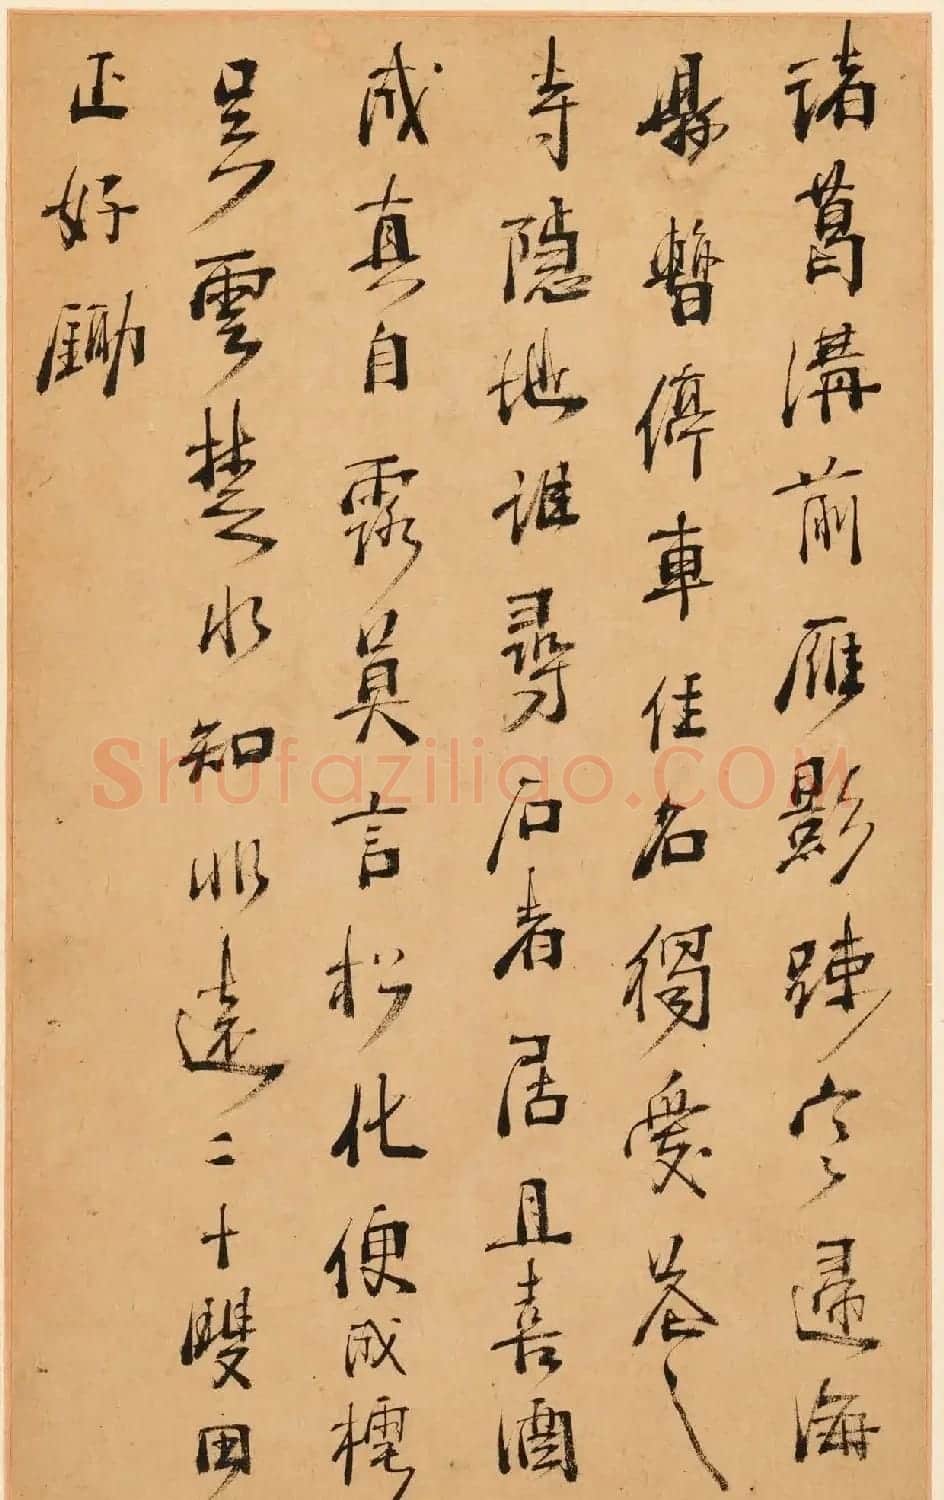 諸葛溝前雁影疎歸海
縣暫停車佳名獨愛花之
寺隱地誰尋石者居且喜酒
成真自露莫言松化便成樗
吳雲楚水知非遠二十雙田
正好鋤
Shufaziliao.COM